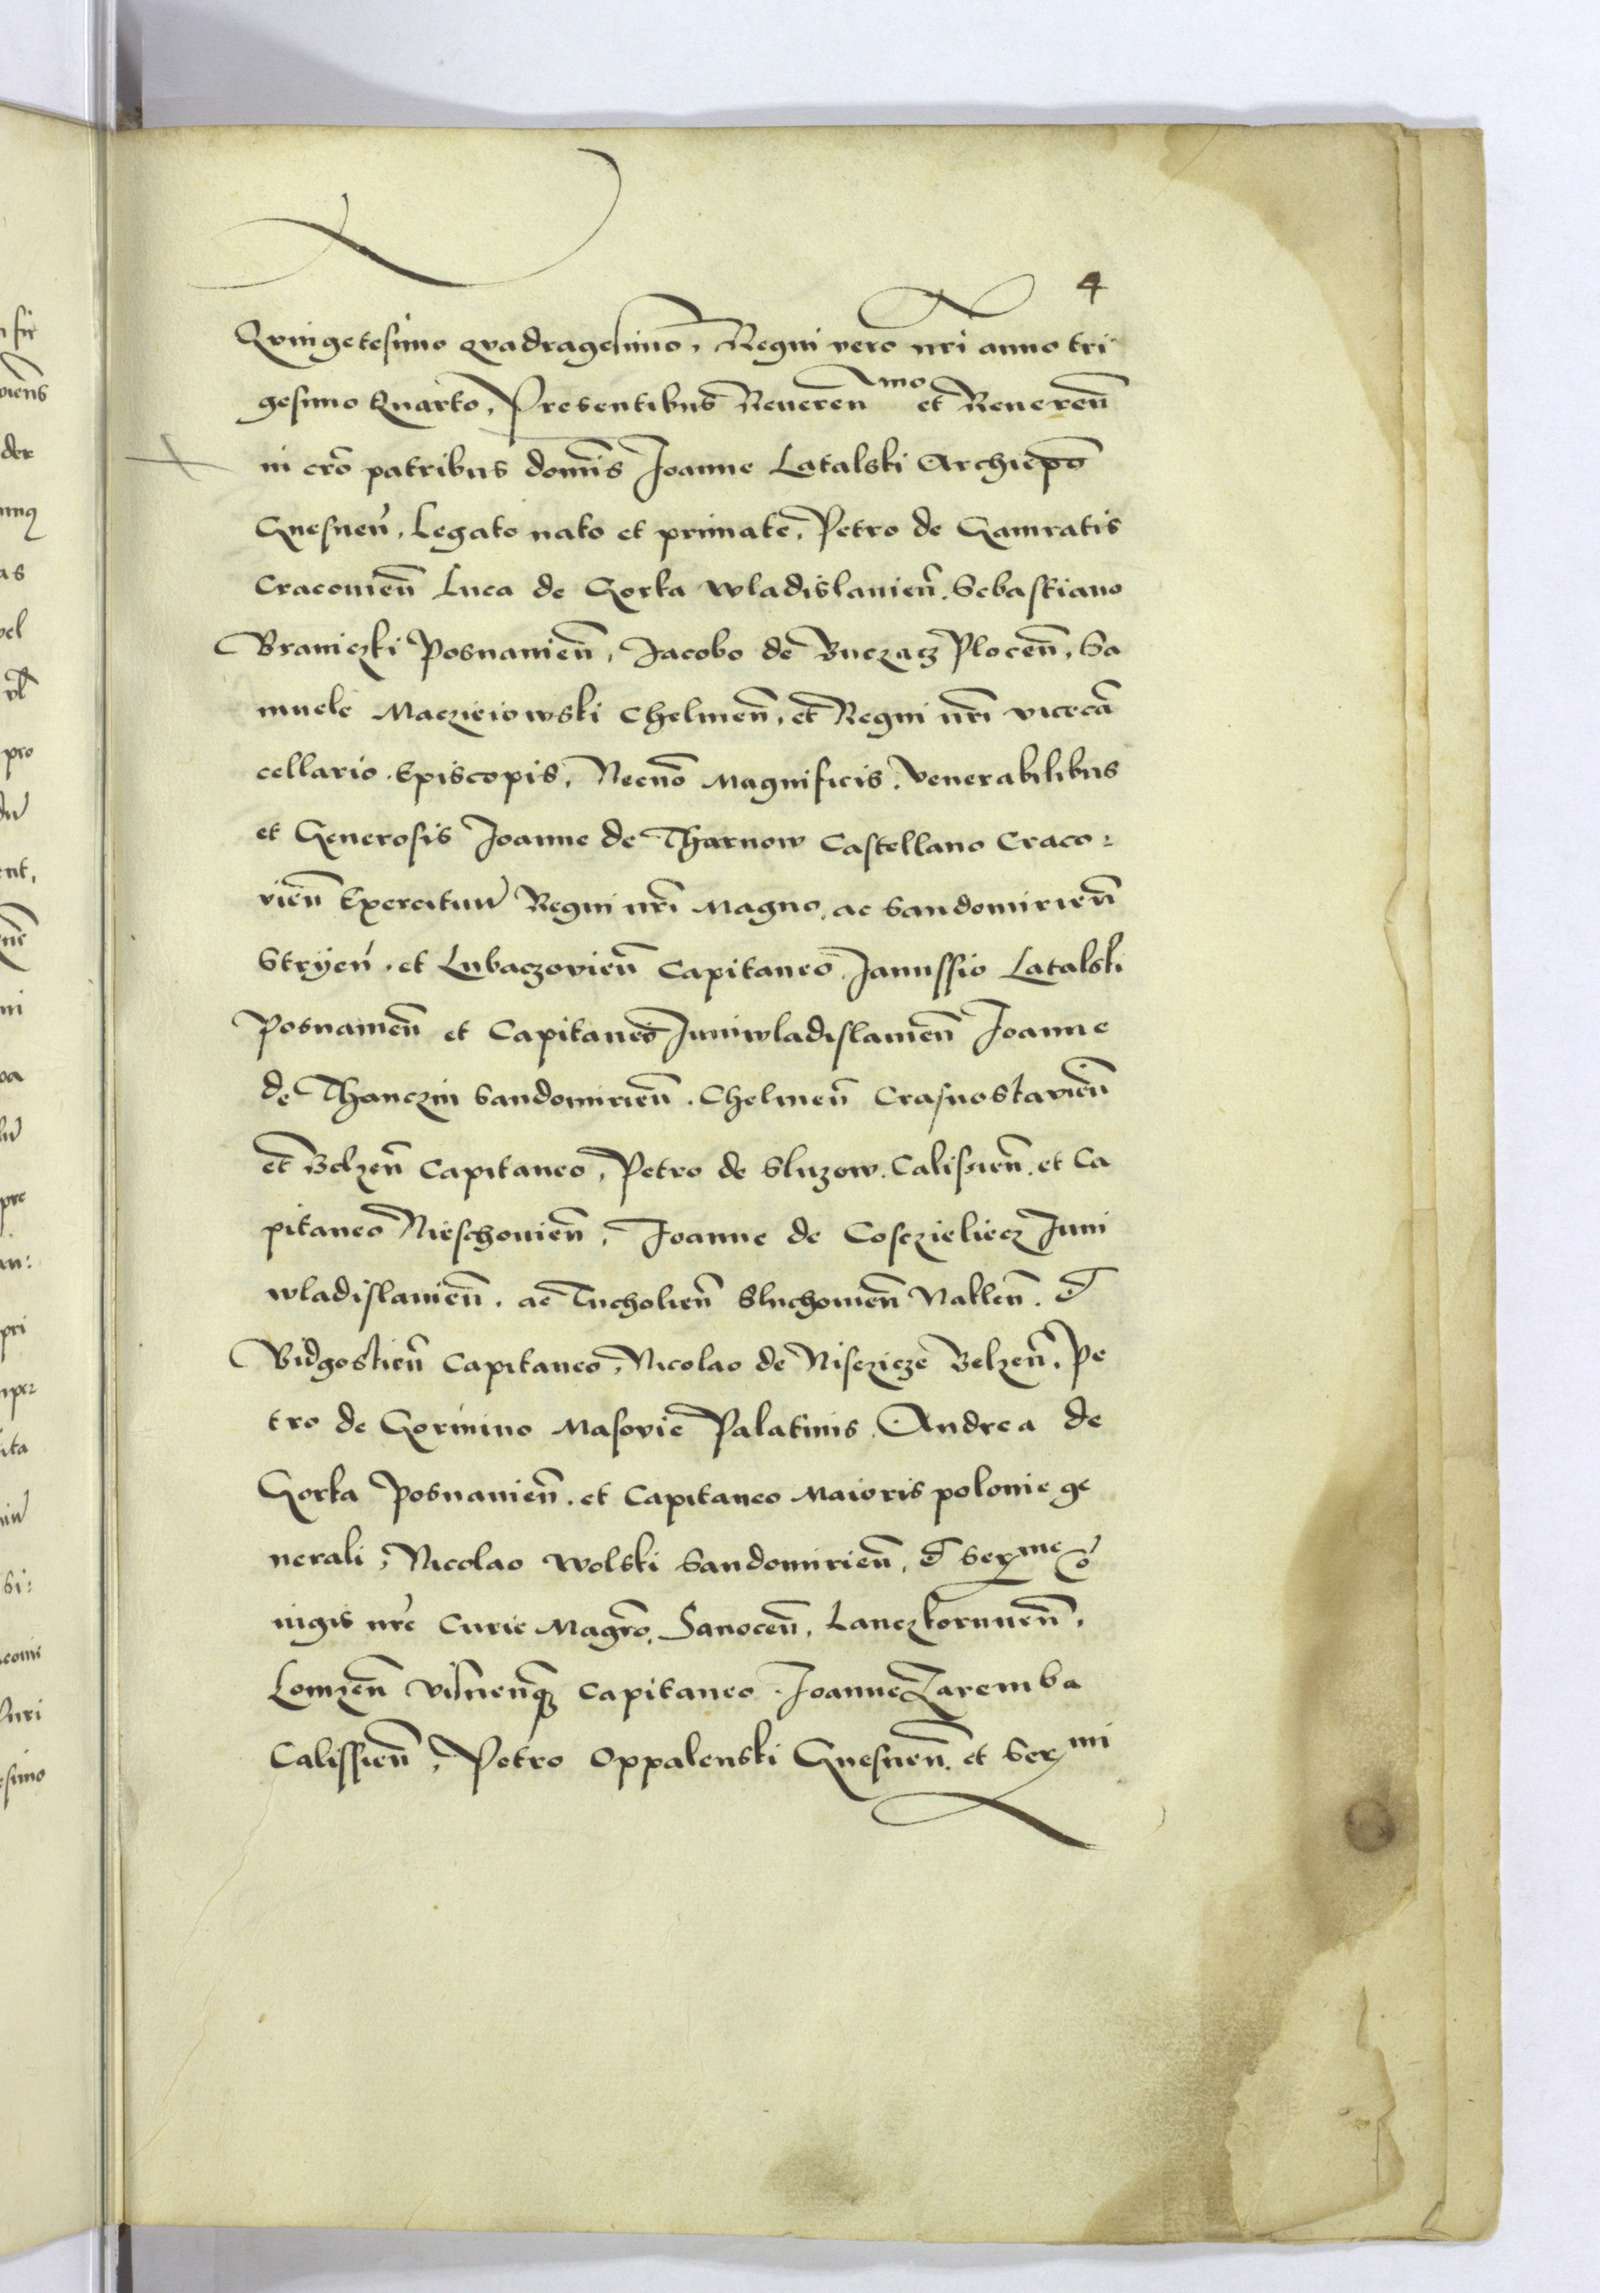 4
Qvingetesimo qvadragesimo, Regni vero nri anno tri
gesimo Quarto, Presentibus Reueren mo et Reueren̄
in cro patribus domis Joanne Latalski Archiepo
Gnesnen̄, Legato nato et primate, Petro de Gamratis
Cracouien̄ Luca de Gorka Wladislauien̄, Sebastiano
Braniczki Posnanien̄, Jacobo de Buczacz Plocen̄, Sa
muele Maczieiowski Chelmen̄, et Regni nri vicecā
cellario Episcopis, Necnō Magnificis, Venerabilibus
et Generosis Joanne de Tharnow Castellano Craco:
vien̄ Exercituū Regni nri Magno, ac Sandomirien̄
Stryen̄, et Lubaczovien̄ Capitaneo, Janussio Latalski
Posnanien̄ et Capitaneo Juniwladislauien̄ Joanne
de Thanczin Sandomirien̄, Chelmen̄ Crasnostavien̄
et Belzen̄ Capitaneo, Petro de Sluzow, Calissien̄, et Ca
pitaneo Nieschouien̄, Joanne de Cosczieliecz Juni
wladislauien̄, ac Tucholien̄ Sluchouien̄ Naklen̄, et
Bidgostien̄ Capitaneo, Nicolao de Nisczicze Belzen̄, Pe
tro de Gorinino Masovie Palatinis, Andrea de
Gorka Posnanien̄, et Capitaneo Maioris polonie ge
nerali, Nicolao Wolski Sandomirien̄, et Ser me cō
iugis nre Curie Magro, Sanocen̄, Lanczkorunen̄,
Lomzen̄ Visnen̄q3 Capitaneo, Joanne Zaremba
Calissien̄, Petro Oppalenski Gnesnen̄, et Ser mi
pro
vel
as
pre
pri